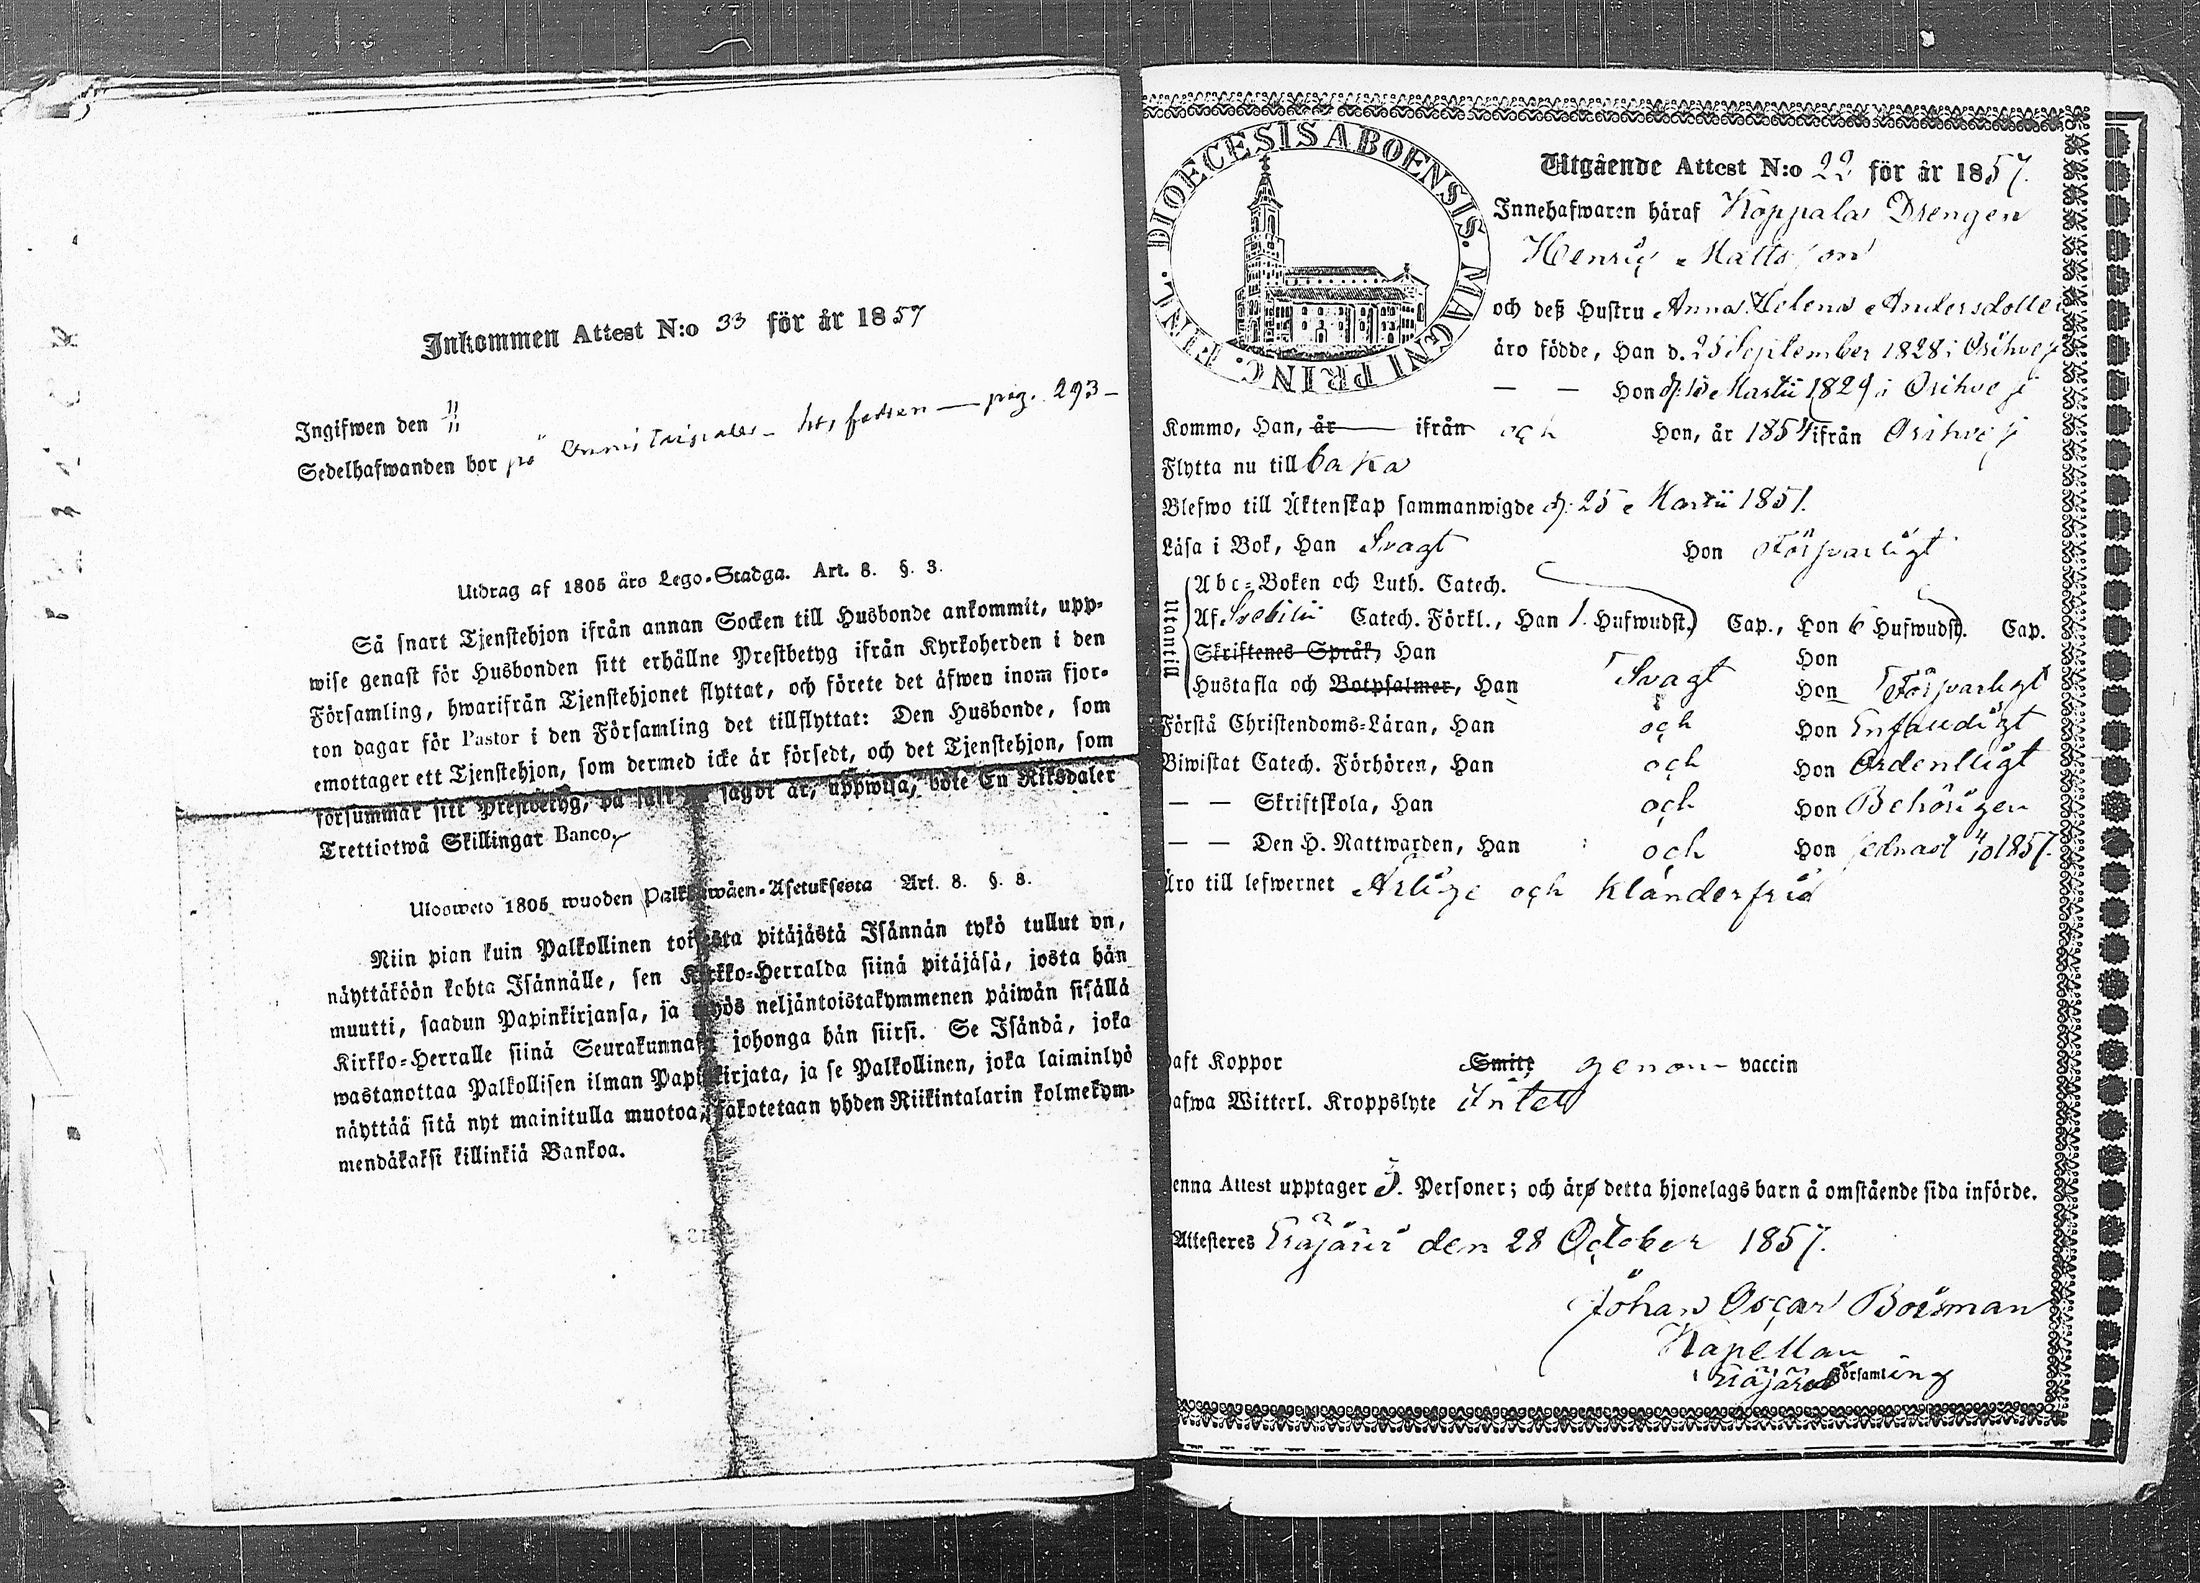 Inkommen Attest N:o 33 för år 1857
Ingifwen den 11/11
Sedelhafwanden bor på pag. 293 –
Utdrag af 1805 års Lego-Stadga. Art. 8. §. 3.
Så snart Tjenstehjon ifrån annan Socken till Husbonde ankommit, upp-
wise genast för Husbonden sitt erhållne Prestbetyg ifrån Kyrkoherden i den
Församling, hwarifrån Tjenstehjonet flyttat, och förete det äfwen inom fjor-
ton dagar för Pastor i den Församling det tillflyttat: Den Husbonde, som
emottager ett Tjenstehjon, som dermed icke är försedt, och det Tjenstehjon, som
försummar sitt Prestbetyg, på sätt sagdt är, uppwisa, böte En Riksdaler
Trettiotwå Skillingar Banco.
Ulosweto 1805 wuoden Palkkawäen-Asetuksesta Art. 8. §. 8.
Niin pian kuin Palkollinen toisesta pitäjästä Isännän tykö tullut on,
näyttäköön kohta Isännälle, sen Kirkko-Herralda siinä pitäjäsä, josta hän
muutti, saadun Papinkirjansa, ja myös neljäntoistakymmenen päiwän sisällä
Kirkko-Herralle siinä Seurakunnasa johonga hän siirsi. Se Isändä, joka
wastanottaa Palkollisen ilman Papinkirjata, ja se Palkollinen, joka laiminlyö
näyttää sitä nyt mainitulla muotoa, sakotetaan yhden Riikintalarin kolmekym-
mendäkaksi killinkiä Bankoa.
DIOECESIS ABOENSIS. MAGNI PRINC. FINL.
Utgående Attest N:o 22 för år 1857.
Innehafwaren häraf Koppala Drengen
Henric Mattsson
och deß Hustru Anna Helena Andersdotter
äro födde, Han d. 25 September 1828 i Orihvesi
— — Hon d. 10 Martii 1829 i Orihvesi
Kommo, Han, år ifrån och Hon, år 1854 ifrån Orihvesi
Flytta nu tillbaka
Blefwo till Äktenskap sammanwigde d. 25 Martii 1851.
Läsa i Bok, Han Svagt Hon Försvarligt
Utantill
Abc-Boken och Luth. Catech.
Af Svebilii Catech. Förkl., Han 1. Hufwudst. Cap., Hon 6 Hufwudst. Cap.
Skriftenes Språk, Han Hon
Hustafla och Botpsalmer, Han Svagt Hon Försvarligt
Förstå Christendoms-Läran, Han och Hon Enfaldigt
Biwistat Catech. Förhören, Han och Hon Ordentligt
— — Skriftskola, Han och Hon Behörigen
— — Den H. Nattwarden, Han och Hon sednast 4/10 1857.
äro till lefwernet Ärlige och klanderfria
haft Koppor Smitt genom vaccin
hafwa Witterl. Kroppslyte intet
Denna Attest upptager 3. Personer; och äro detta hjonelags barn å omstående sida införde.
Attesteres Eräjärvi den 28 October 1857.
Johan Oscar Boisman
Kapellan
i Eräjärvi Församling